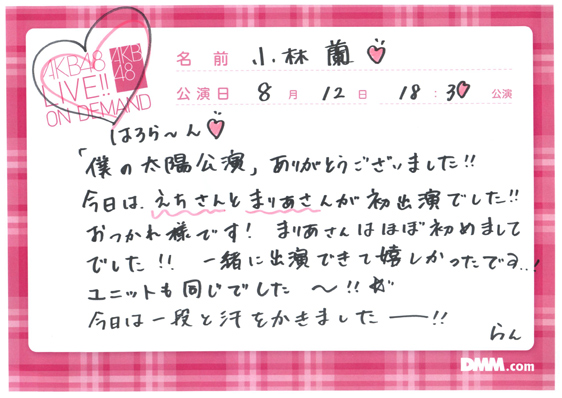 AKB48
LIVE!!
ON DEMAND
AKB
48
名前 小林蘭
公演日 8月 12日 18:30 公演
はろら〜ん
「僕の太陽公演」ありがとうございました!!
今日は、えちさんとまりあさんが初出演でした!!
おつかれ様です! まりあさんはほぼ初めまして
でした!! 一緒に出演できて嬉しかったです..!
ユニットも同じでした 〜!!
今日は一段と汗をかきました ー!!
らん
DMM.com